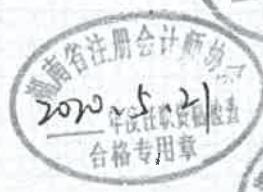 湖南省注册会计师协会
2020.5.21
年度任职资格检查
合格专用章